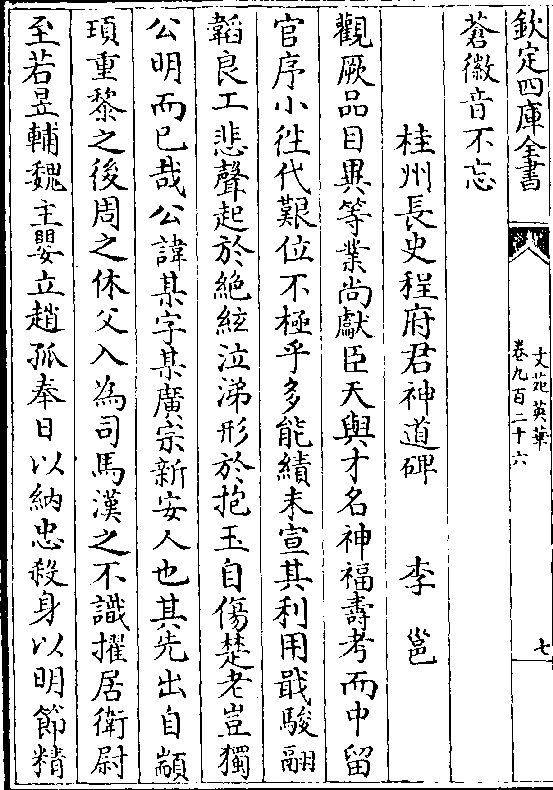 欽定四庫全書
文苑英華
卷九百二十六
七
蒼徽音不忘
桂州長史程府君神道碑 李邕
觀厥品目異等業尚獻臣天與才名神福壽考而中留
官序小徃代艱位不極乎多能績未宣其利用戢駿翮
韜良工悲聲起於絶絃泣涕形於抱玉自傷楚老豈獨
公明而已哉公諱某字某廣宗新安人也其先出自顓
頊重黎之後周之休父入為司馬漢之不識擢居衛尉
至若昱輔魏主嬰立趙孤奉日以納忠殺身以明節精